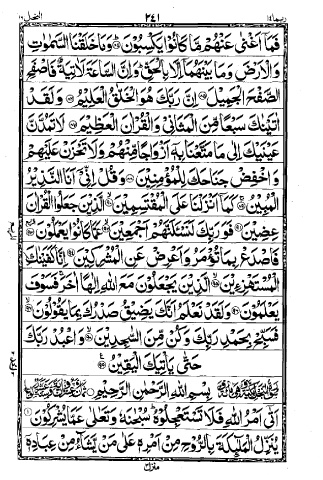 النحل ١٦ ٢٤١ ربما ١٤
فَمَا اَغْنٰى عَنْهُمْ مَّا كَانُوْا يَكْسِبُوْنَ وَمَا خَلَقْنَا السَّمٰوٰتِ
وَالْاَرْضَ وَمَا بَيْنَهُمَا اِلَّا بِالْحَقِّ وَاِنَّ السَّاعَةَ لَاٰتِيَةٌ فَاصْفَحِ
الصَّفْحَ الْجَمِيْلَ اِنَّ رَبَّكَ هُوَ الْخَلّٰقُ الْعَلِيْمُ وَلَقَدْ
اٰتَيْنٰكَ سَبْعًا مِّنَ الْمَثَانِيْ وَالْقُرْاٰنَ الْعَظِيْمَ لَا تَمُدَّنَّ
عَيْنَيْكَ اِلٰى مَا مَتَّعْنَا بِهٖٓ اَزْوَاجًا مِّنْهُمْ وَلَا تَحْزَنْ عَلَيْهِمْ
وَاخْفِضْ جَنَاحَكَ لِلْمُؤْمِنِيْنَ وَقُلْ اِنِّيْٓ اَنَا النَّذِيْرُ
الْمُبِيْنُ كَمَآ اَنْزَلْنَا عَلَى الْمُقْتَسِمِيْنَ الَّذِيْنَ جَعَلُوا الْقُرْاٰنَ
عِضِيْنَ فَوَرَبِّكَ لَنَسْـَٔلَنَّهُمْ اَجْمَعِيْنَ عَمَّا كَانُوْا يَعْمَلُوْنَ
فَاصْدَعْ بِمَا تُؤْمَرُ وَاَعْرِضْ عَنِ الْمُشْرِكِيْنَ اِنَّا كَفَيْنٰكَ
الْمُسْتَهْزِءِيْنَ الَّذِيْنَ يَجْعَلُوْنَ مَعَ اللّٰهِ اِلٰهًا اٰخَرَ فَسَوْفَ
يَعْلَمُوْنَ وَلَقَدْ نَعْلَمُ اَنَّكَ يَضِيْقُ صَدْرُكَ بِمَا يَقُوْلُوْنَ
فَسَبِّحْ بِحَمْدِ رَبِّكَ وَكُنْ مِّنَ السّٰجِدِيْنَ وَاعْبُدْ رَبَّكَ
حَتّٰى يَاْتِيَكَ الْيَقِيْنُ
بِسْمِ اللّٰهِ الرَّحْمٰنِ الرَّحِيْمِ
اَتٰٓى اَمْرُ اللّٰهِ فَلَا تَسْتَعْجِلُوْهُ سُبْحٰنَهٗ وَتَعٰلٰى عَمَّا يُشْرِكُوْنَ
يُنَزِّلُ الْمَلٰٓئِكَةَ بِالرُّوْحِ مِنْ اَمْرِهٖ عَلٰى مَنْ يَّشَآءُ مِنْ عِبَادِهٖٓ
منزل